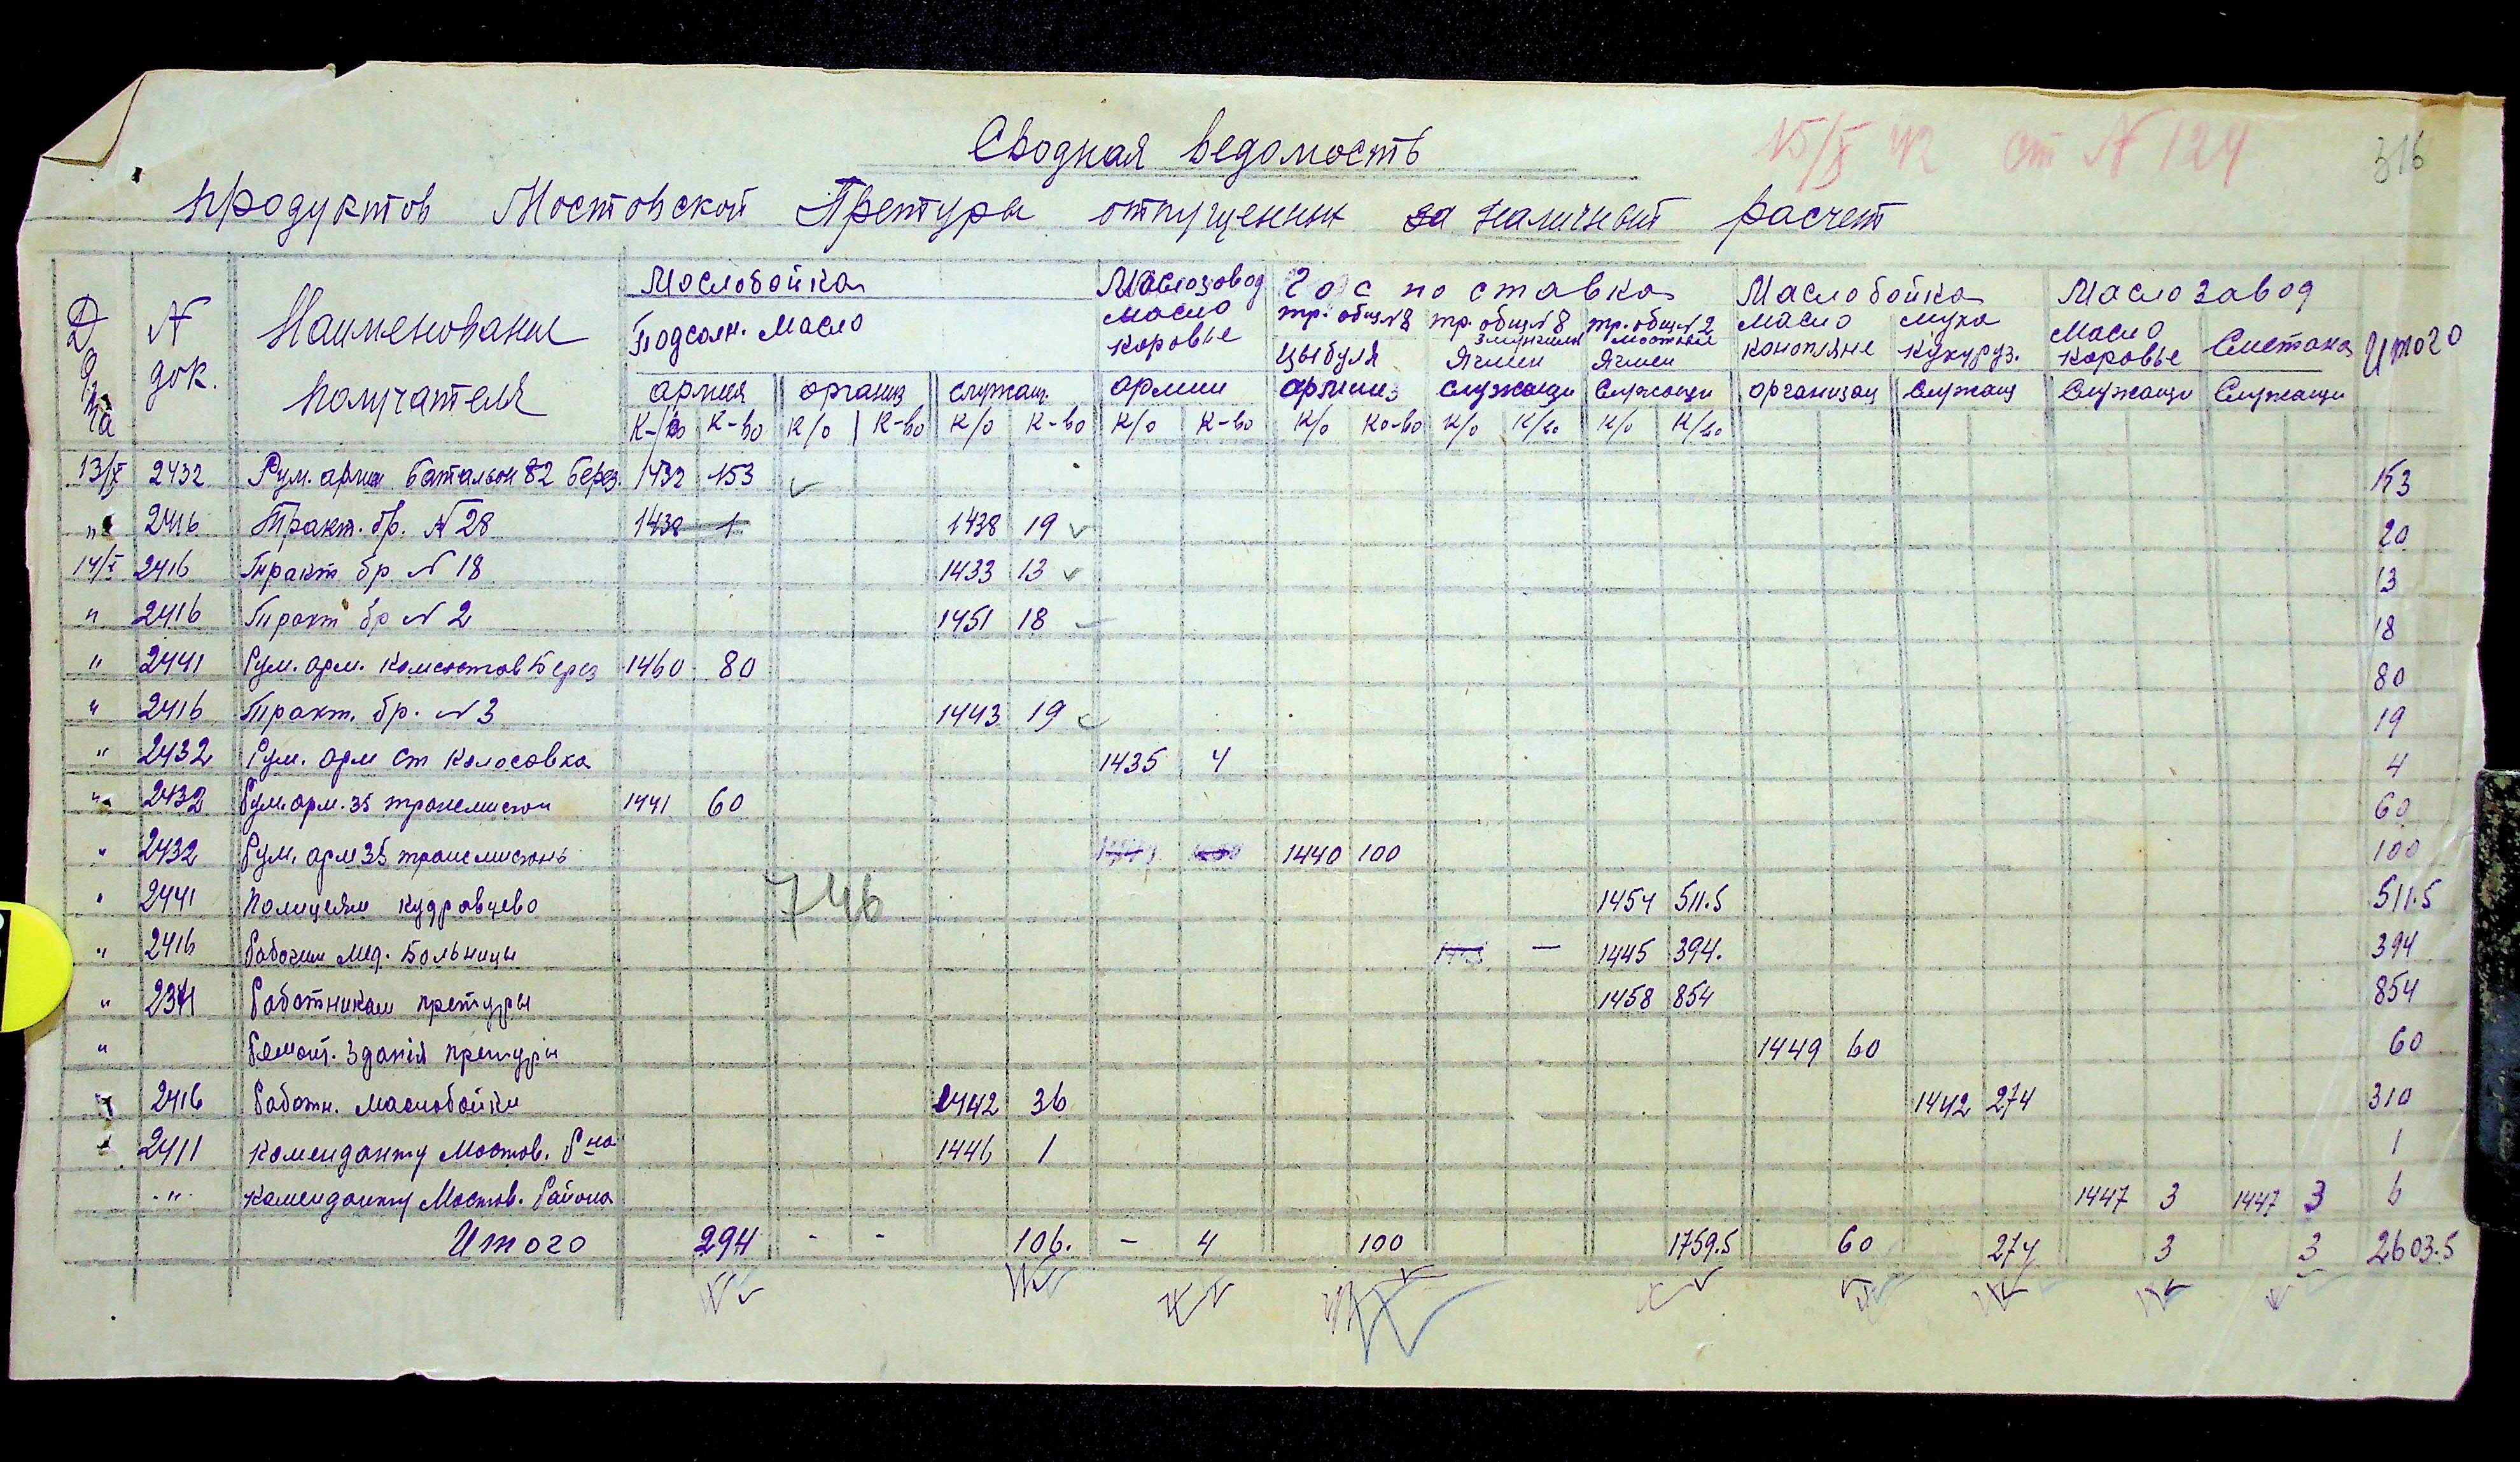 Сводная ведомость
15/X 42 ст № 124
316
продуктов Мостовской Претуры отпущенных за наличный расчет
Дата № док. Наименование получателя Маслобойка Маслозавод Гос поставка Маслобойка Маслозавод Итого
Подсолн. масло масло коровье тр. общ №8 цыбуля тр. общ №8 Ячмен тр. общ № 2 Ячмен масло конопляне мука кукуруз. Масло коровье Сметана
армия организ служащ. армии армии служащи служащи организац служащ служащи служащи
К-во К-во К/о К-во К/о К-во К/о К-во К/о Ко-во К/о К/во К/о К/во
13/X 2432 Рум. армия батальон 82 Берез. 1432 153 153
" 2416 Тракт. бр. № 28 1438 1 1438 19 20
14/X 2416 Тракт бр № 18 1433 13 13
" 2416 Тракт бр № 2 1451 18 18
" 2441 Рум. арм. комсостав Берез 1460 80 80
" 2416 Тракт. бр. № 3 1443 19 19
" 2432 Рум. арм ст Колосовка 1435 4 4
" 2432 Рум. арм. 35 трансмистон 1441 60 60
" 2432 Рум. арм 35 трансмистонь 1440 100 100
746
" 2441 Полицеям Кудрявцево 1454 511.5 511.5
" 2416 Рабочим мед. Больницы — 1445 394. 394
" 2341 Работникам претуры 1458 854 854
" Ремонт. Зданія претуры 1449 60 60
" 2416 Работн. Маслобойки 1442 36 1442 274 310
" 2411 Коменданту Мостов. Р-на 1446 1 1
" Коменданту Мостов. Района 1447 3 1447 3 6
Итого 294 - - 106. - 4 100 1759.5 60 274 3 3 2603.5